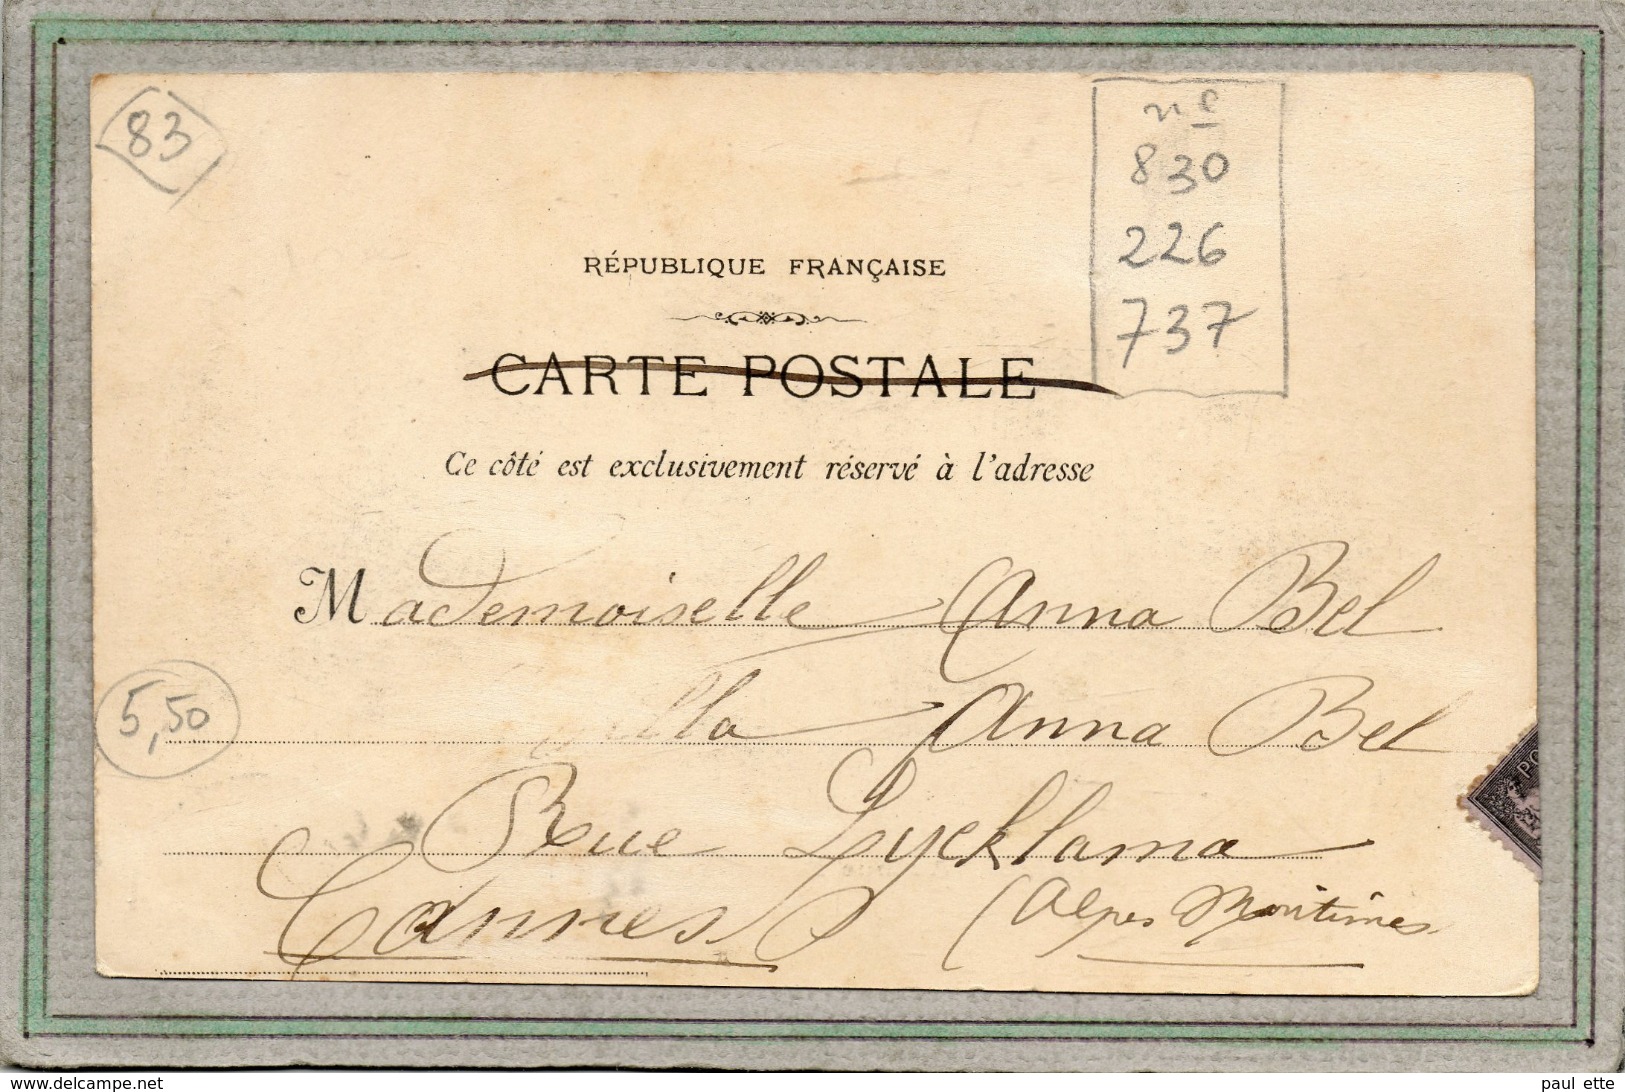 83
n°
830
226
737
RÉPUBLIQUE FRANÇAISE
CARTE POSTALE
Ce côté est exclusivement réservé à l'adresse
Mademoiselle Anna Bel
Villa Anna Bel
5,50
PO
Rue Lycklama
Cannes (Alpes Maritimes
delcampe.net
paul ette